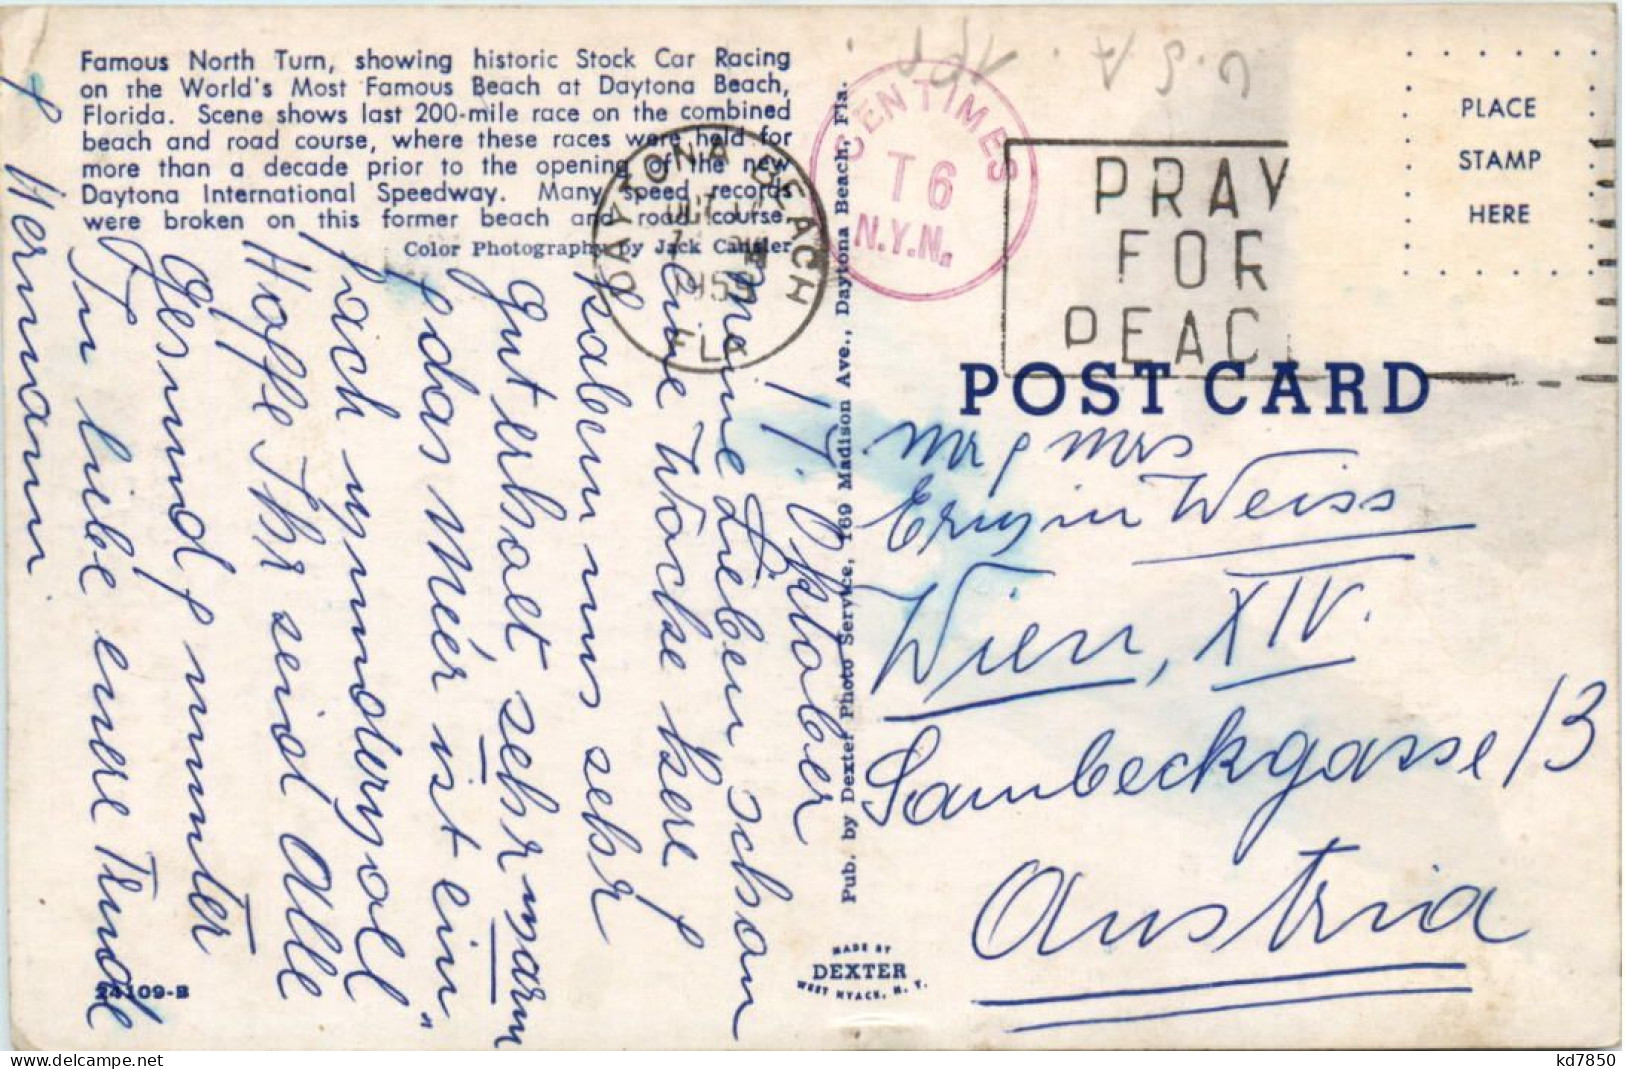 Famous North Turn, showing historic Stock Car Racing
on the World's Most Famous Beach at Daytona Beach,
Florida. Scene shows last 200-mile race on the combined
beach and road course, where these races were held for
more than a decade prior to the opening of the new
Daytona International Speedway. Many speed records
were broken on this former beach and road course.
Color Photography by Jack Cansler
DAYTONA BEACH
OCT
1959
FLA
CENTIMES
T 6
N.Y.N.
U.S.A.
PRAY
FOR
PEAC
PLACE
STAMP
HERE
POST CARD
Pub. by Dexter Photo Service, 169 Madison Ave., Daytona Beach, Fla.
17. Oktober
Meine Lieben schon
eine Woche her
haben uns sehr
gut erholt, sehr warm
das Meer ist ein
Hoffe Ihr seid Alle
gesund, munter
In liebe eure Trude
Hermann
Mr Mrs
Erwin Weiss
Wien, XIV.
Sambeckgasse 13
Austria
MADE BY
DEXTER
WEST NYACK, N. Y.
24109-B
kd7850